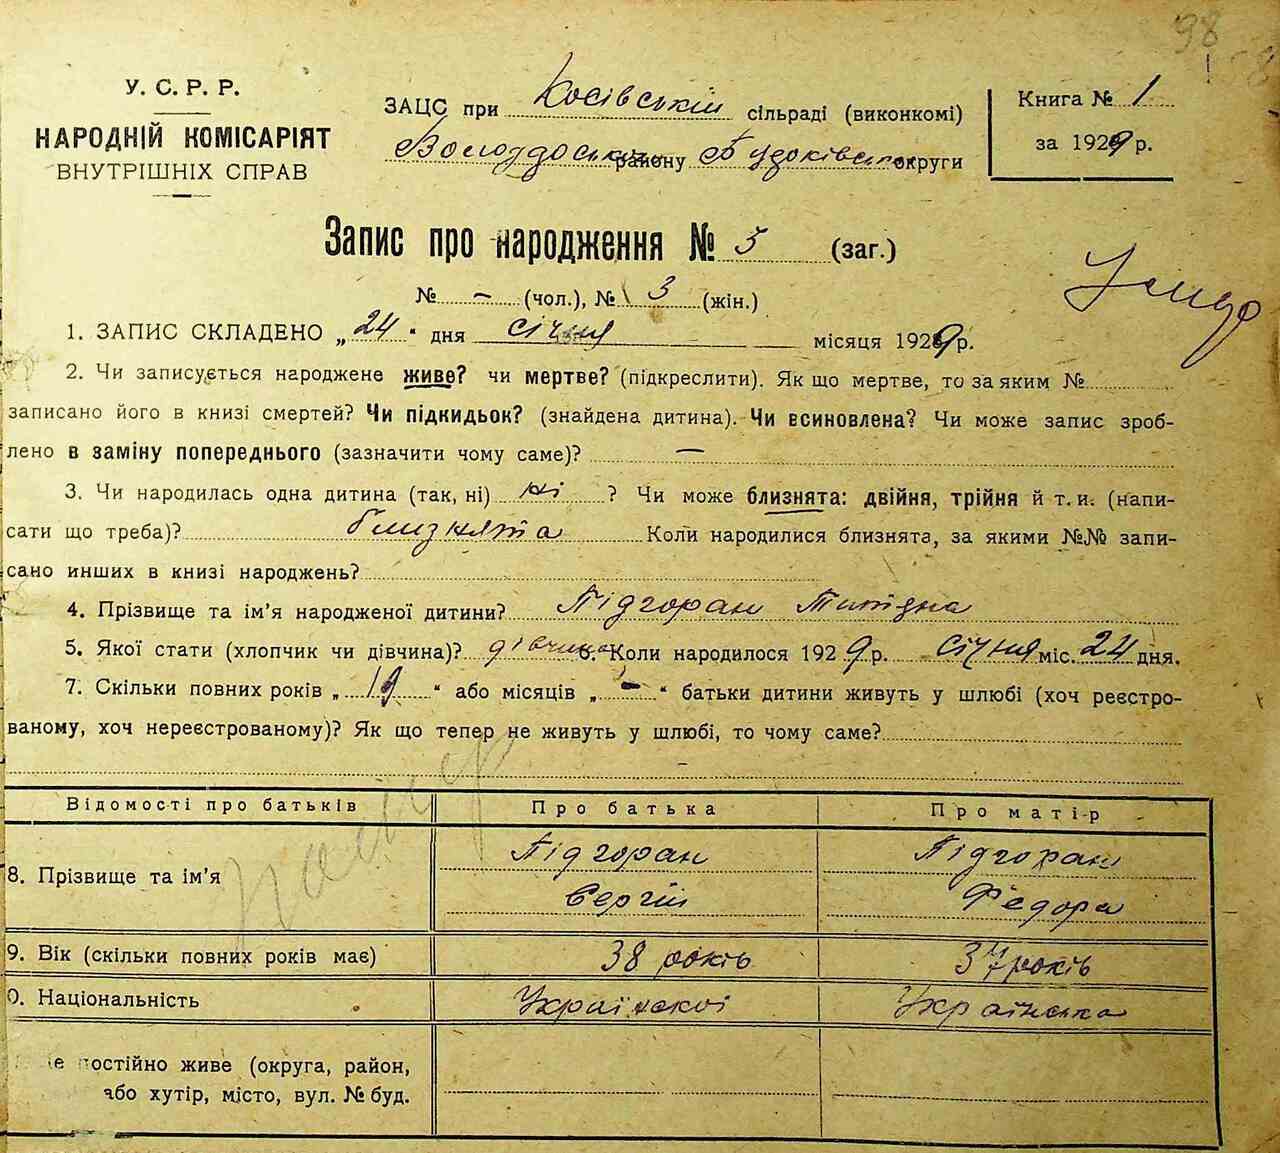 98
У. С. Р. Р.
НАРОДНІЙ КОМІСАРІЯТ
ВНУТРІШНІХ СПРАВ
ЗАЦС при Косівській сільраді (виконкомі)
району округи
Книга № 1
за 1929 р.
Запис про народження № 5 (заг.)
№ - (чол.), № 3 (жін.)
1. ЗАПИС СКЛАДЕНО „24“ дня січня місяця 1929 р.
2. Чи записується народжене живе? чи мертве? (підкреслити). Як що мертве, то за яким №
записано його в книзі смертей? Чи підкидьок? (знайдена дитина). Чи всиновлена? Чи може запис зроб-
лено в заміну попереднього (зазначити чому саме)? —
3. Чи народилась одна дитина (так, ні) ні ? Чи може близнята: двійня, трійня й т. и. (напи-
сати що треба)? близнята Коли народилися близнята, за якими №№ запи-
сано инших в книзі народжень?
4. Прізвище та ім'я народженої дитини? Підгоран
5. Якої стати (хлопчик чи дівчина)? дівчина 6. Коли народилося 1929 р. січня міс. 24 дня.
7. Скільки повних років „19“ або місяців „-“ батьки дитини живуть у шлюбі (хоч реєстро-
ваному, хоч нереєстрованому)? Як що тепер не живуть у шлюбі, то чому саме?
-
Відомості про батьків Про батька Про матір
8. Прізвище та ім'я Підгоран Сергій Підгоран Федора
9. Вік (скільки повних років має) 38 років 37 років
0. Національність Українскої Українська
е постійно живе (округа, район,
або хутір, місто, вул. № буд.